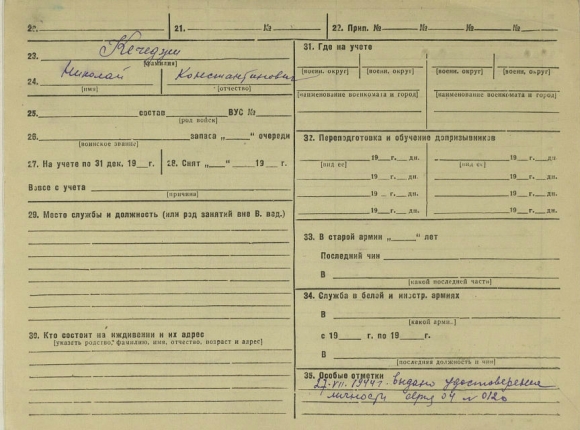 20. 21. № 22. Прип. № № № №
23. Кечеджи
(фамилия)
24. Николай Константинович
(имя) (отчество)
25. состав ВУС №
(род войск)
26. запаса „ “ очереди
(воинское звание)
27. На учете по 31 дек. 19 г. 28. Снят „ “ 19 г.
Вовсе с учета
(причина)
29. Место службы и должность (или род занятий вне В. вед.)
30. Кто состоит на иждивении и их адрес
(указать родство, фамилию, имя, отчество, возраст и адрес)
31. Где на учете
(воен. округ) (воен. округ) (воен. округ) (воен. округ)
(наименование военкомата и город) (наименование военкомата и город)
32. Переподготовка и обучение допризывников
19 г. дн. 19 г. дн.
(вид ее) (вид ее)
19 г. дн. 19 г. дн.
19 г. дн. 19 г. дн.
19 г. дн. 19 г. дн.
33. В старой армии „ “ лет
Последний чин
В
(какой последней части)
34. Служба в белой и иностр. армиях
В
(какой арми.)
с 19 г. по 19 г.
В
(последняя должность и чин)
35. Особые отметки
VII. 1944 г. выдано удостоверение
личности серия 04 № 012